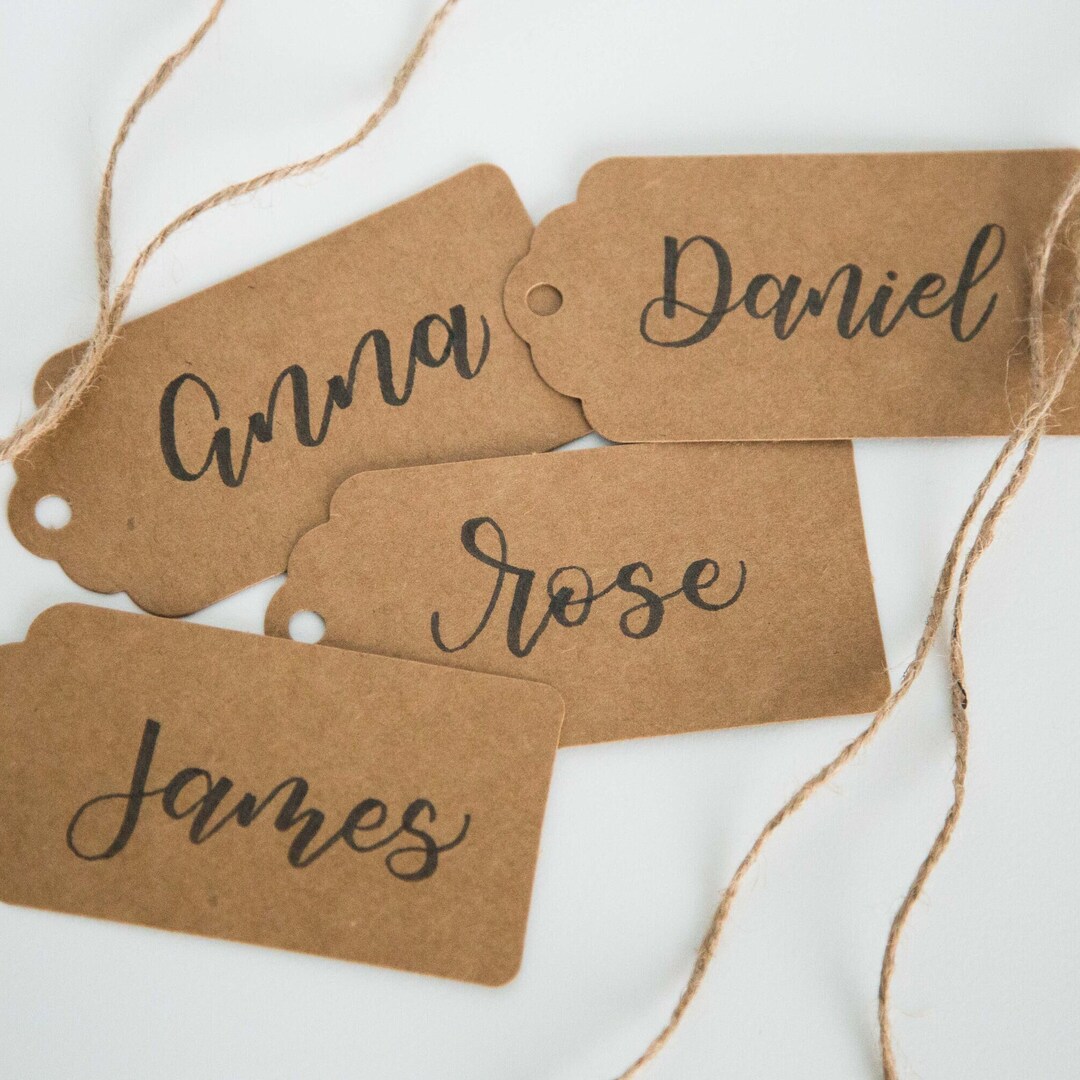 Daniel
anna
rose
James